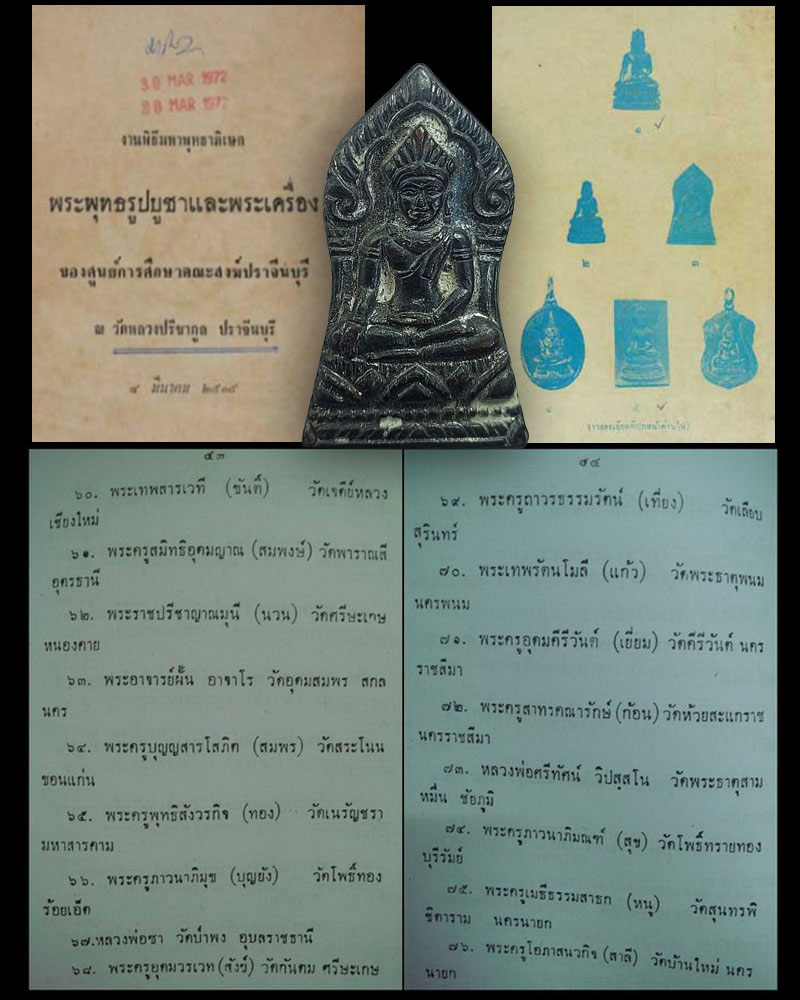 30 MAR 1972
30 MAR 1972
งานพิธีมหาพุทธาภิเษก
พระพุทธรูปบูชาและพระเครื่อง
ของศูนย์การศึกษาคณะสงฆ์ปราจีนบุรี
ณ วัดหลวงปรีชากูล ปราจีนบุรี
๔ มีนาคม ๒๕๑๔
๑
๒
๓
๔
๕
๔๓
๖๐. พระเทพสารเวที (ขันติ์) วัดเจดีย์หลวง
เชียงใหม่
๖๑. พระครูสมิทธิอุดมญาณ (สมพงษ์) วัดพาราณสี
อุดรธานี
๖๒. พระราชปรีชาญาณมุนี (นวน) วัดศรีษะเกษ
หนองคาย
๖๓. พระอาจารย์ผั้น อาจาโร วัดอุดมสมพร สกล
นคร
๖๔. พระครูบุญญสารโสภิต (สมพร) วัดสระโนน
ขอนแก่น
๖๕. พระครูพุทธิสังวรกิจ (ทอง) วัดเนรัญชรา
มหาสารคาม
๖๖. พระครูภาวนาภิมุข (บุญยัง) วัดโพธิ์ทอง
ร้อยเอ็ด
๖๗.หลวงพ่อชา วัดป่าพง อุบลราชธานี
๖๘. พระครูยุคมวรเวท (สังข์) วัดกันตม ศรีษะเกษ
๔๔
๖๙. พระครูถาวรธรรมรัตน์ (เที่ยง) วัดเลียบ
สุรินทร์
๗๐. พระเทพรัตนโมลี (แก้ว) วัดพระธาตุพนม
นครพนม
๗๑. พระครูอุดมคีรีวันต์ (เยี่ยม) วัดคีรีวันต์ นคร
ราชสีมา
๗๒. พระครูสาทรคณารักษ์ (ก้อน) วัดห้วยสะแกราช
นครราชสีมา
๗๓. หลวงพ่อศรีทัศน์ วิปสฺสโน วัดพระธาตุสาม
หมื่น ชัยภูมิ
๗๔. พระครูภาวนาภิมณฑ์ (สุข) วัดโพธิ์ทรายทอง
บุรีรัมย์
๗๕. พระครูเมธีธรรมสาธก (หนู) วัดสุนทรพิ
ชิตาราม นครนายก
๗๖. พระครูโอภาสนวกิจ (สาลี) วัดบ้านใหม่ นคร
นายก